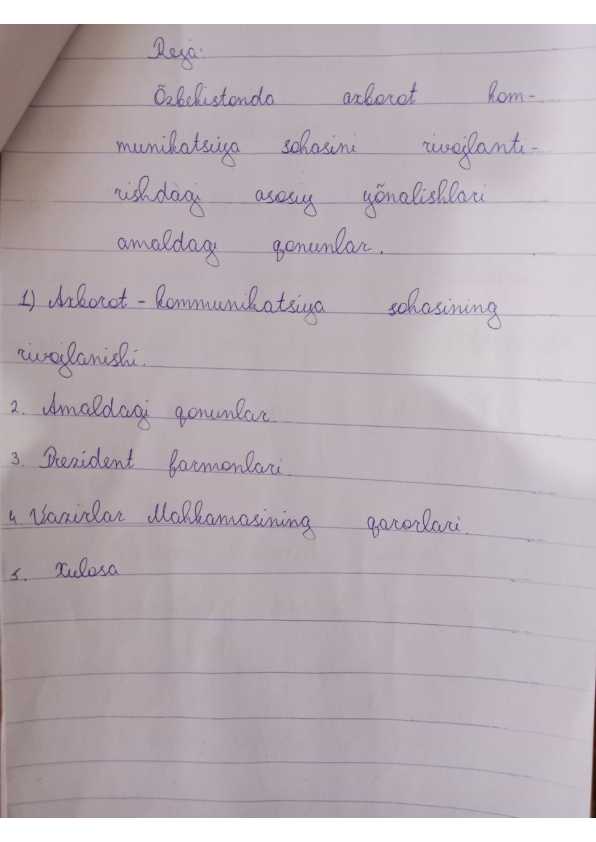 Reja:
Õzbekistonda axborot kom-
munikatsiya sohasini rivojlanti-
rishdagi asosiy yõnalishlari
amaldagi qonunlar.
1) Axborot - kommunikatsiya sohasining
rivojlanishi.
2. Amaldagi qonunlar
3. Prezident farmonlari.
4. Vazirlar Mahkamasining qarorlari.
5. Xulosa